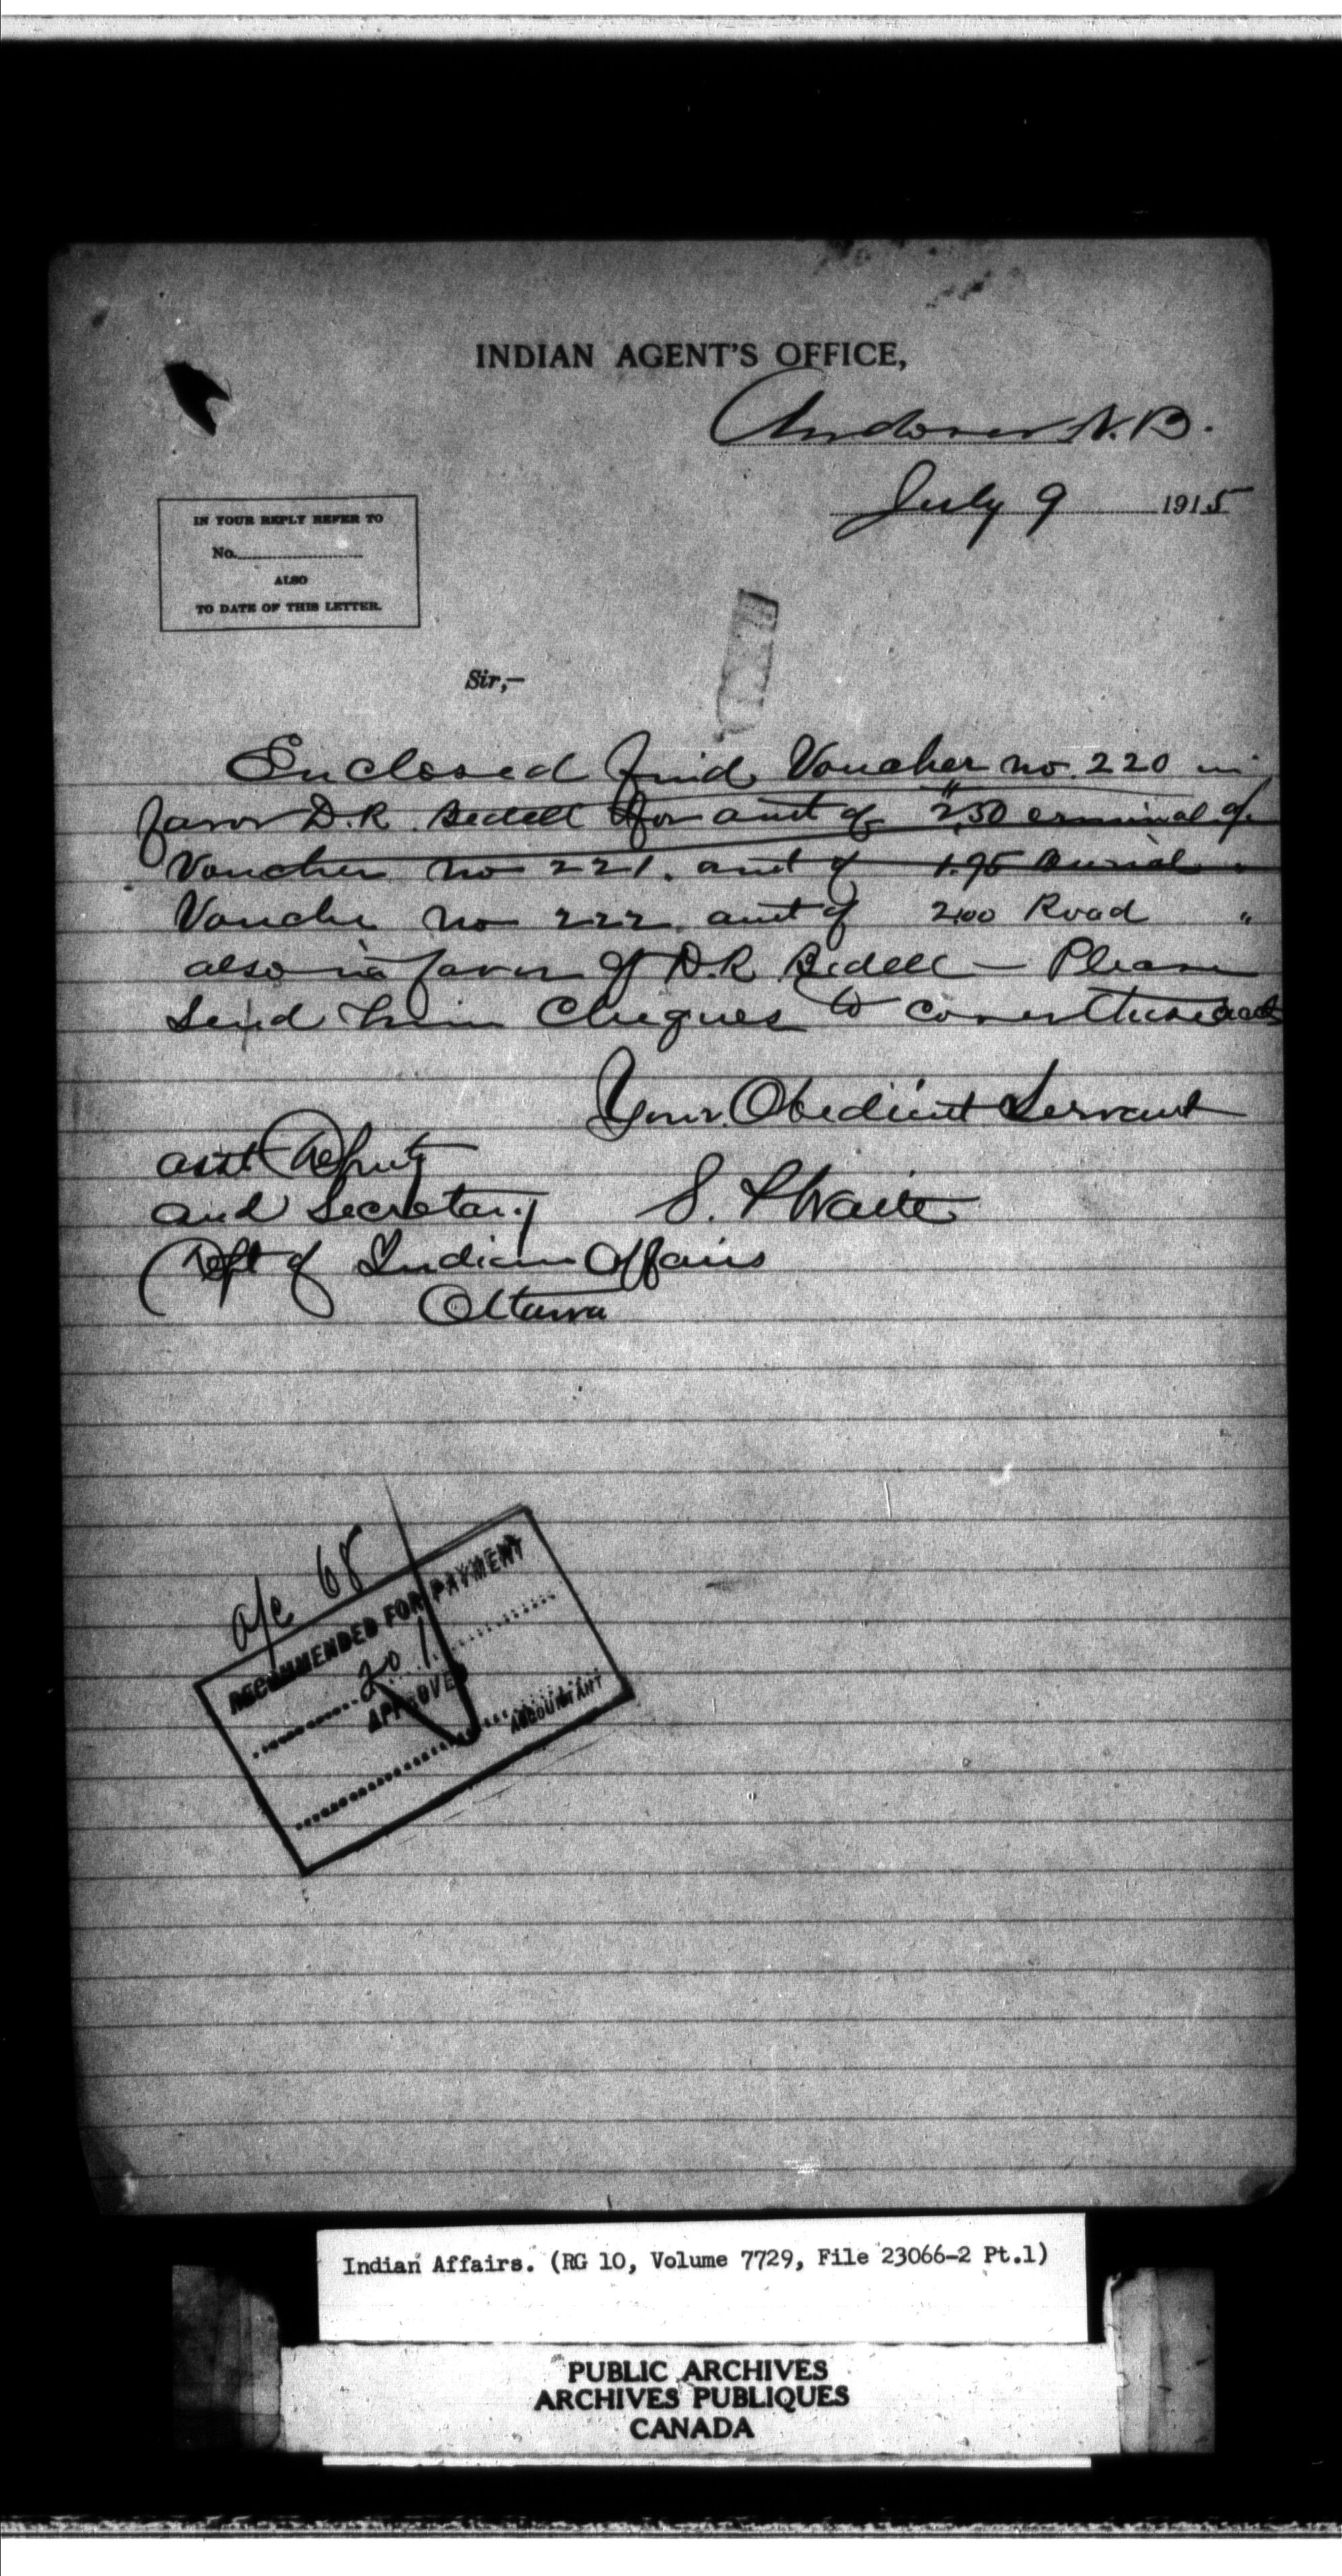 INDIAN AGENT'S OFFICE,
Andover N.B.
July 9 1915
IN YOUR REPLY REFER TO
No.
ALSO
TO DATE OF THIS LETTER.
Sir,—
Enclosed find Voucher no. 220 in
favor D.R. Bedell for amt of 2.50 criminal a/c
Voucher no 221. amt of 1.95 Burial "
Vouche no 222. amt of 2.00 Road "
also in favor of D.R Bedell — Please
Send him Cheques to cover these accts
Your Obedient Servant
asst Deputy
and Secretary S. P Waite
Dept of Indian Affairs
Ottawa
a/c 68
RECOMMENDED FOR PAYMENT
201
APPROVED
ACCOUNTANT
Indian Affairs. (RG 10, Volume 7729, File 23066-2 Pt.1)
PUBLIC ARCHIVES
ARCHIVES PUBLIQUES
CANADA